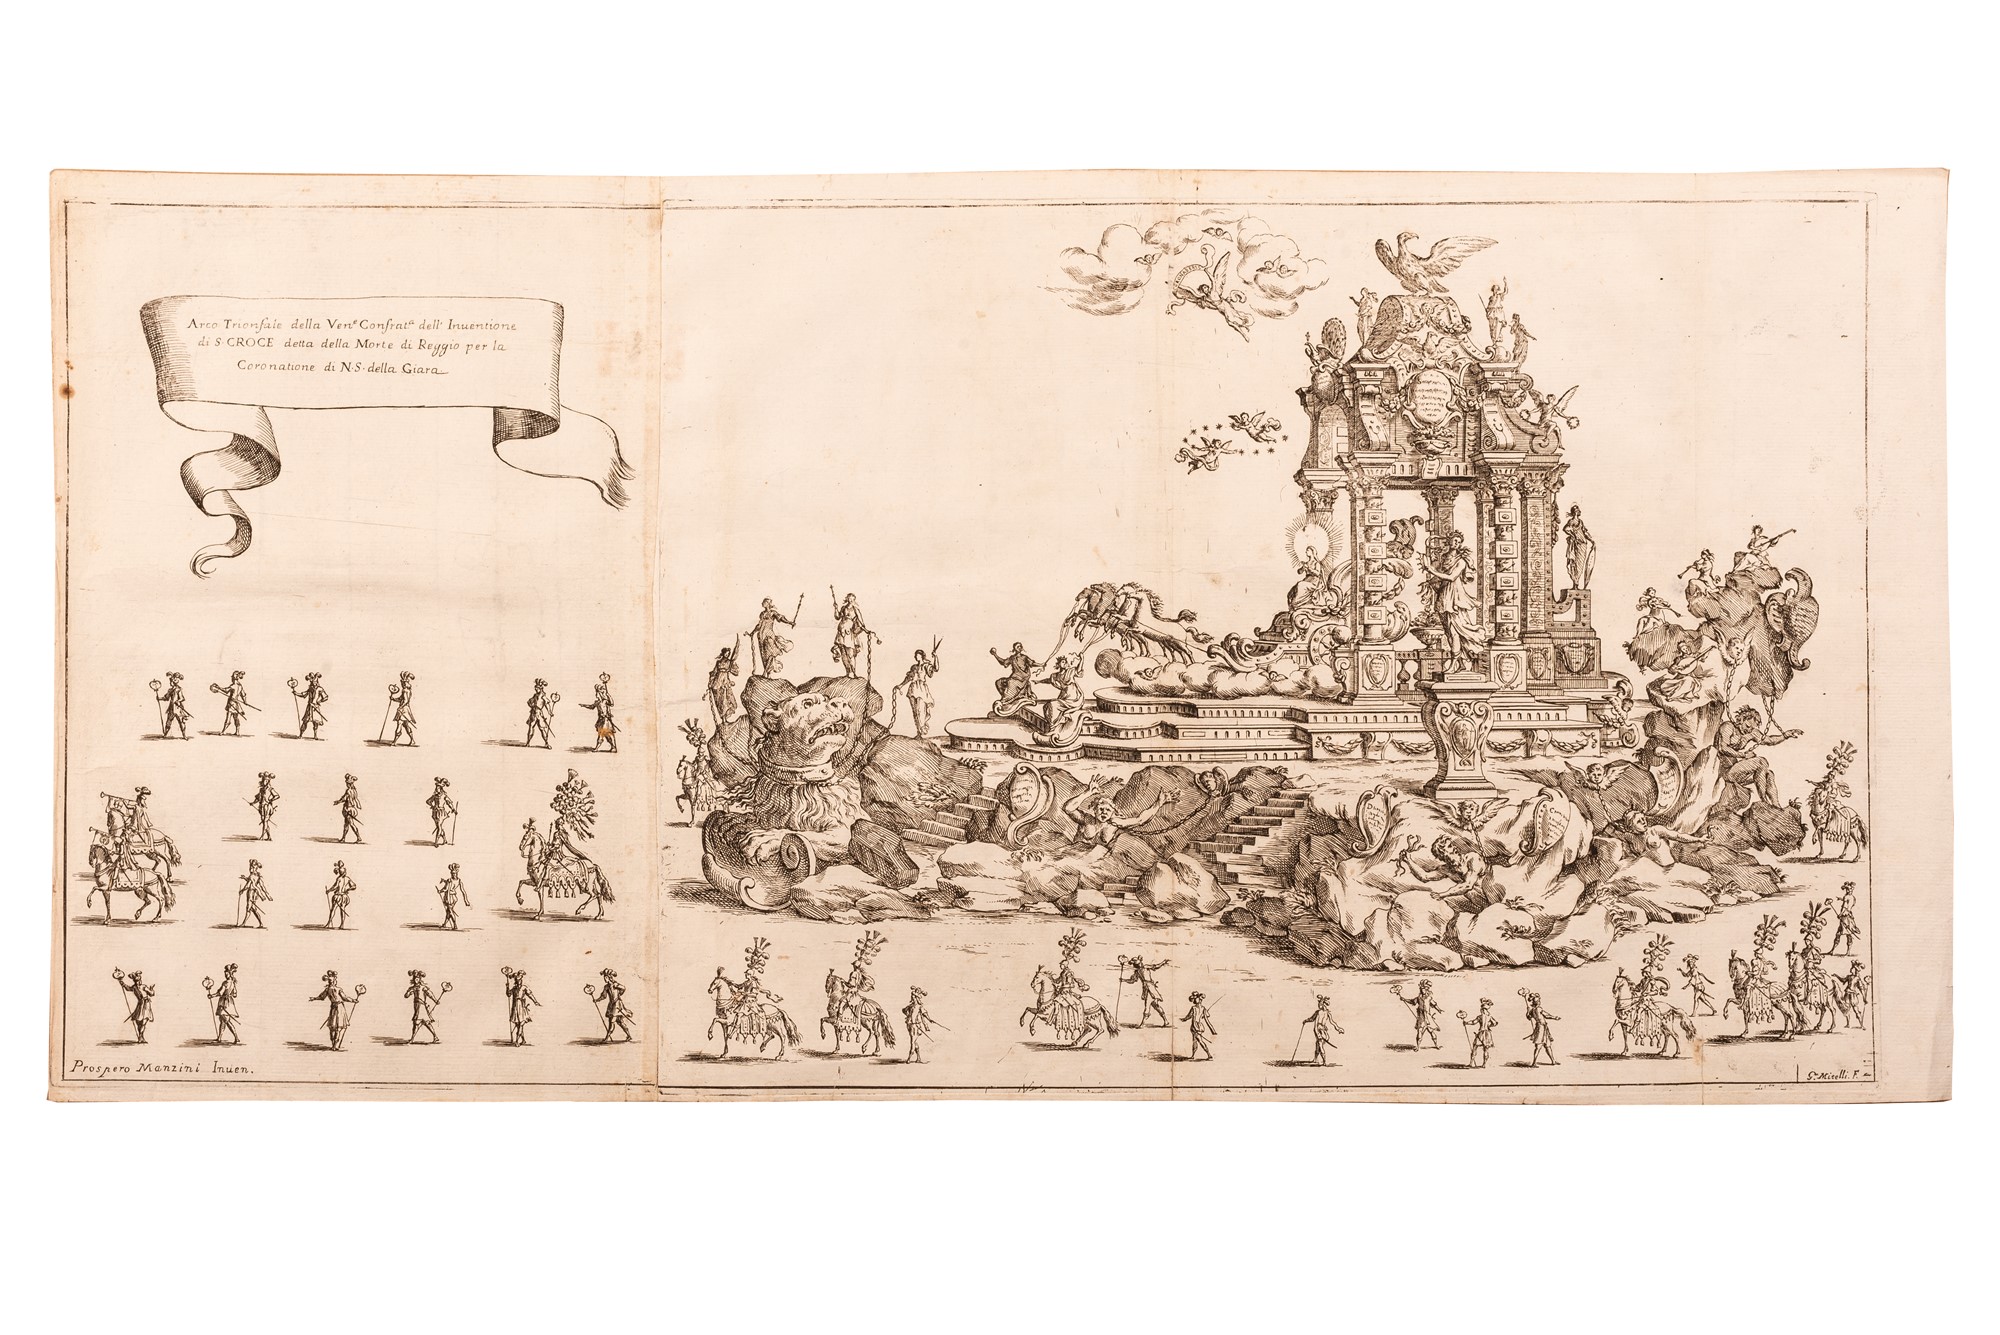 Arco Trionfale della Ven.e Confrat.a dell' Inuentione
di S. CROCE detta della Morte di Reggio per la
Coronatione di N.S. della Giara
Prospero Manzini Inuen.
G. Mitelli. F.